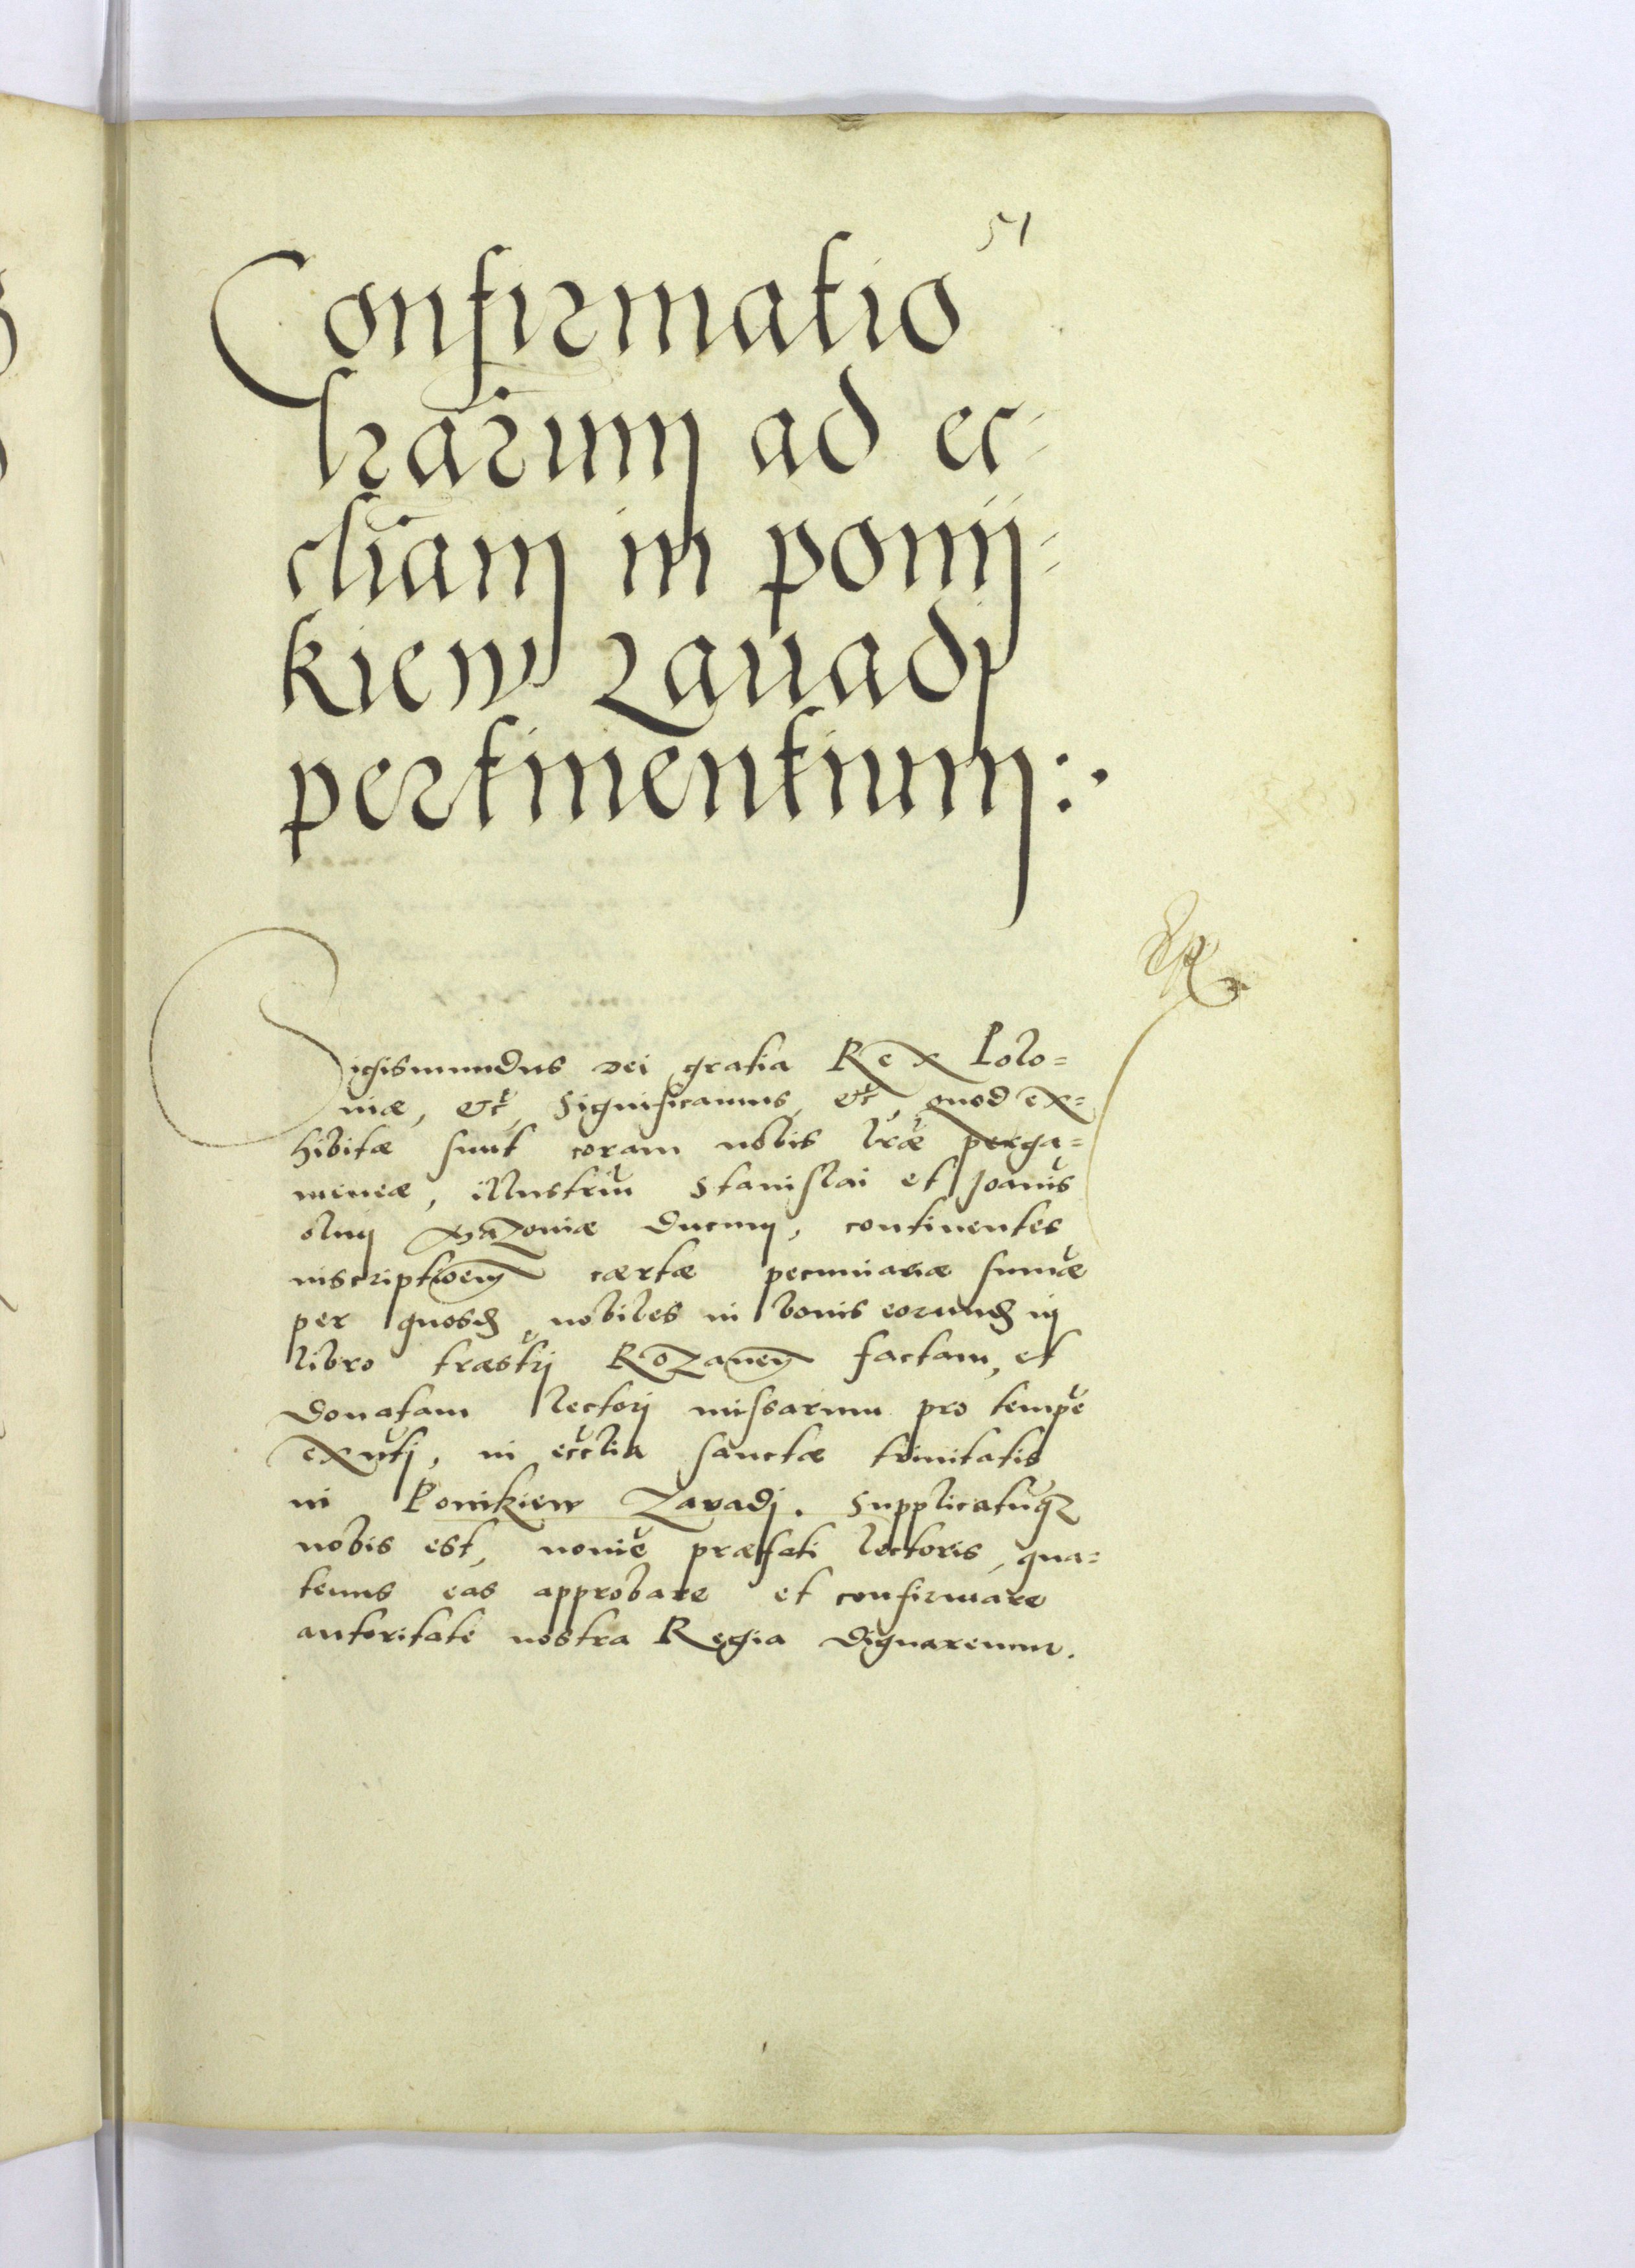 51
Confirmatio
lrarum ad ec-
cliam in ponij-
kiew Zauadj
pertinentium:.
Sigismundus Dei gratia Rex Polo=
niæ, etc̃, Significamus, etc̃, quod ex=
hibitæ sunt coram nobis lr̃æ perga=
meneæ, illustriũ Stanislai et Joannis
olim Mazoniæ Ducum, continentes
inscriptioem̃ cærtæ pecuniariæ sum̃æ
per quosd̃ nobiles in bonis eorund̃ in
libro træstrj Rozaneñ factam, et
Donatam lectorj missarum pro temp̃e
exñtj, in ecc̃lia sanctæ trinitatis
in Ponikiew Zavadj. Supplicatũqꝫ
nobis est, nomĩe præfati lectoris, qua=
tenus eas approbare et confirmare
autoritate nostra Regia Dignaremur.